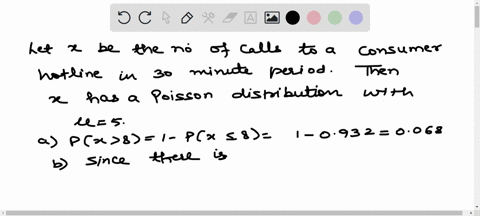 Let x be the no of calls to a consumer
hotline in 30 minute period. Then
x has a Poisson distribution with
μ=5.
a) P(x>8)=1-P(x≤8)= 1-0.932=0.068
b) Since there is